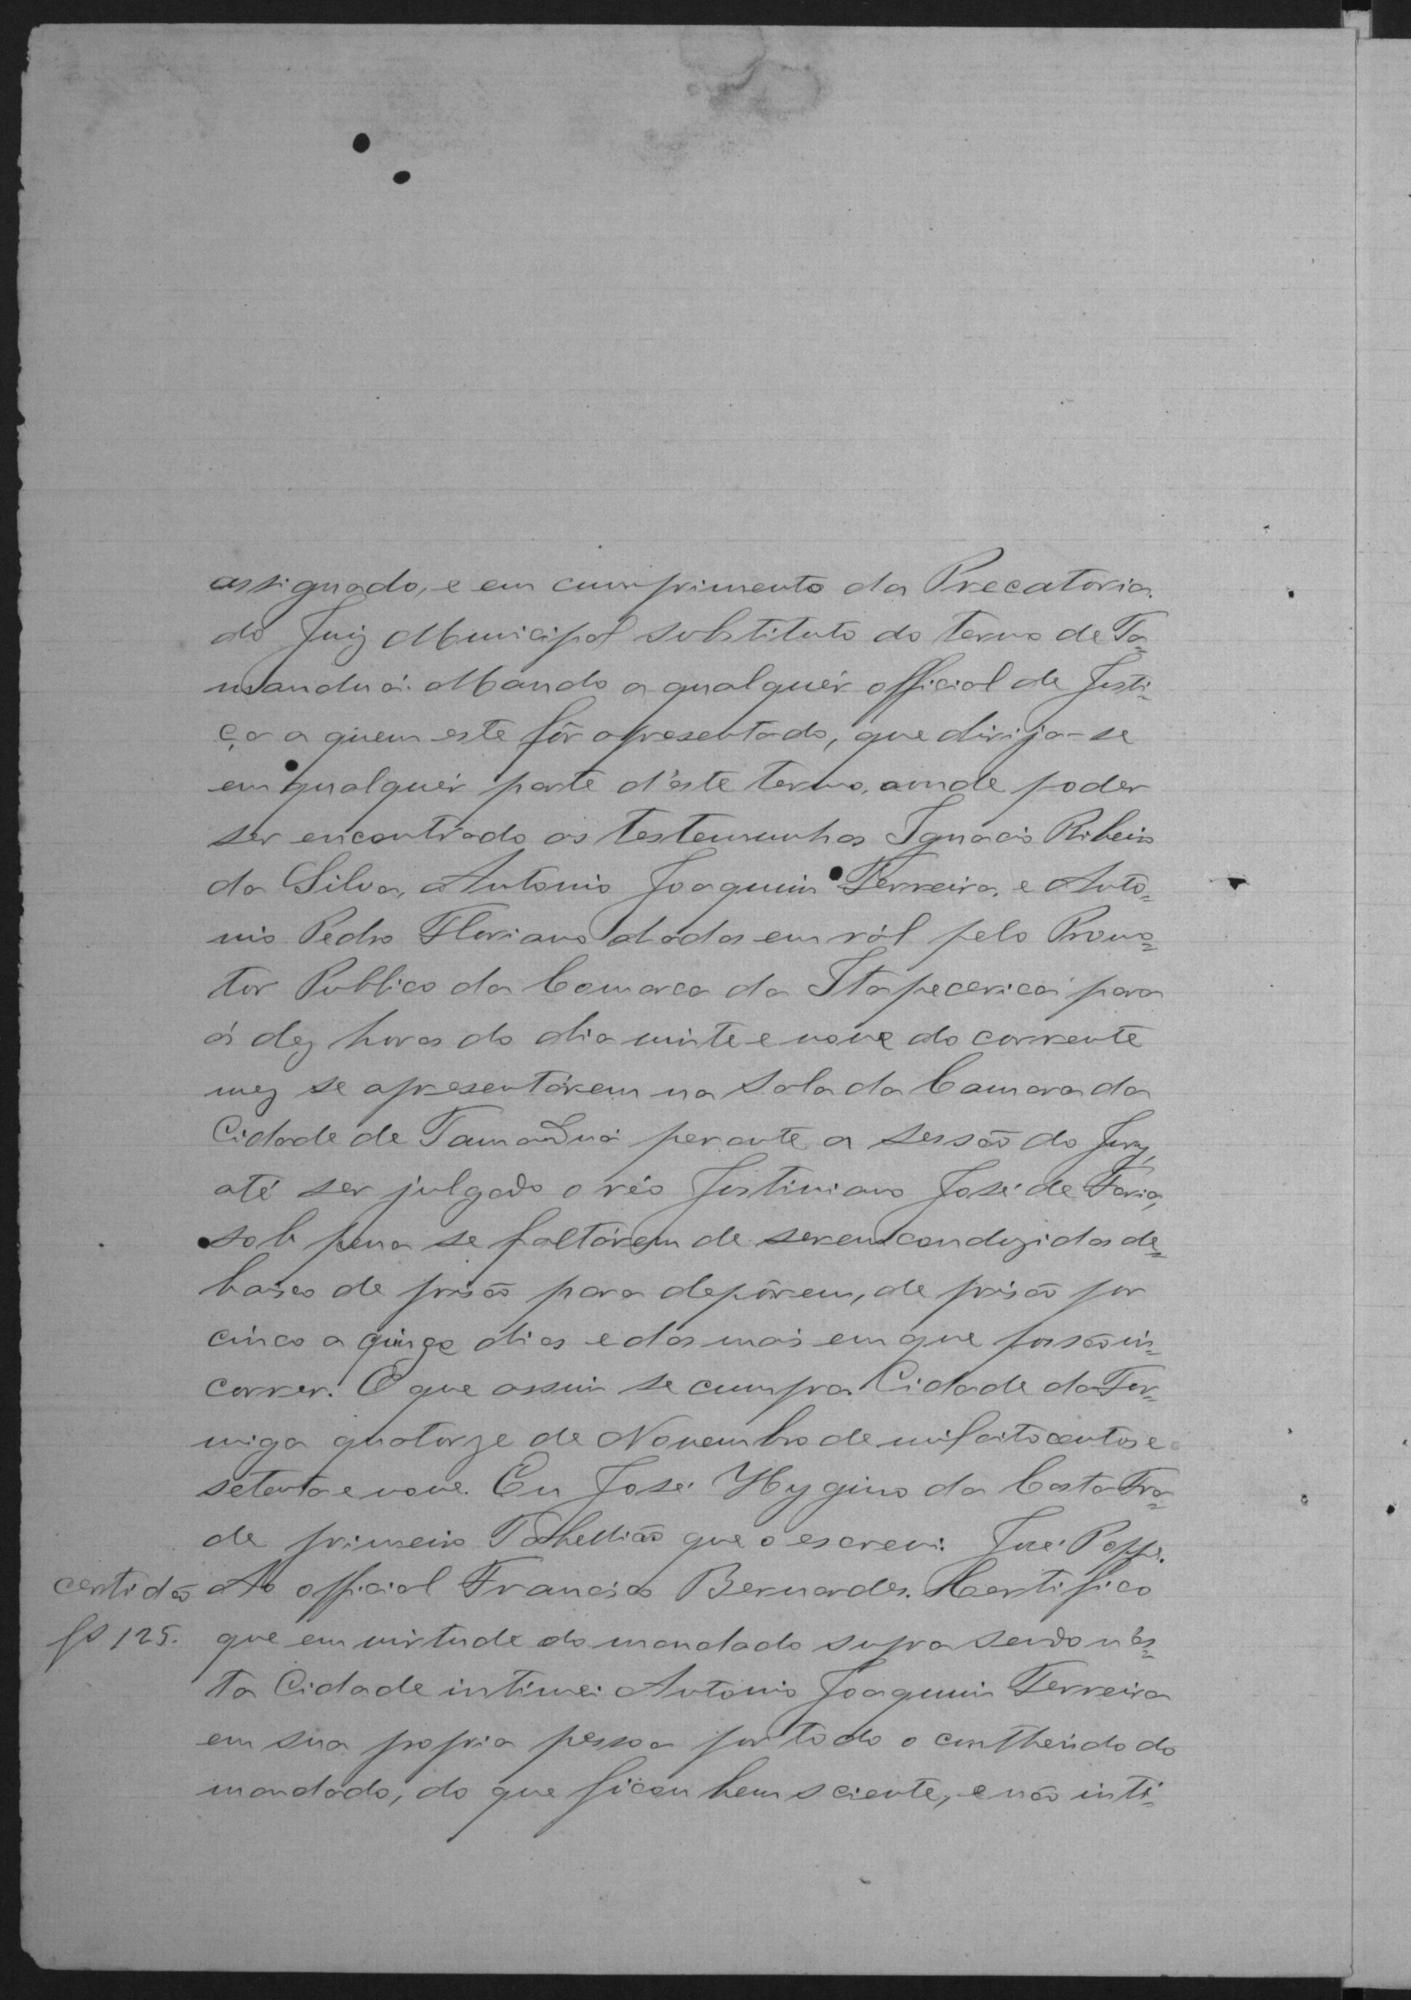 assignado, e em cumprimento da Precatoria
do Juiz Municipal substituto do termo de Ta=
manduá: Mando a qualquér official de Justi=
ça a quem este fôr apresentado, que dirija-se
em qualquér parte d'éste termo, aonde poder
ser encontrado as testemunhas Ignacio Ribeiro
da Silva, Antonio Joaquim Ferreira, e Anto=
nio Pedro Floriano dadas em ról pelo Promo=
tor Publico da Comarca da Itapecerica para
ás dez horas do dia vinte e nove do corrente
mez se apresentárem na Sala da Camara da
Cidade de Tamanduá perante a sessão do Jury,
até ser julgado o réo Justiniano José de Faria,
sob pena se faltárem de serem conduzidas de=
baixo de prisão para depôrem, de prisão por
cinco a quinze dias e das mais em que possão in=
correr. O que assim se cumpra. Cidade da For=
miga quatorze de Novembro de mil oito centos e
setenta e nove. Eu José Hygino da Costa Fra=
de primeiro Tabellião que o escrevi. José Poppe.
certidão
fs 125.
Ao official Francisco Bernardes. Certifico
que em virtude do mandado supra sendo n'és=
ta Cidade intimei Antonio Joaquim Ferreira
em sua propria pessoa por todo o contheúdo do
mandado, do que ficou bem sciente, e não inti=